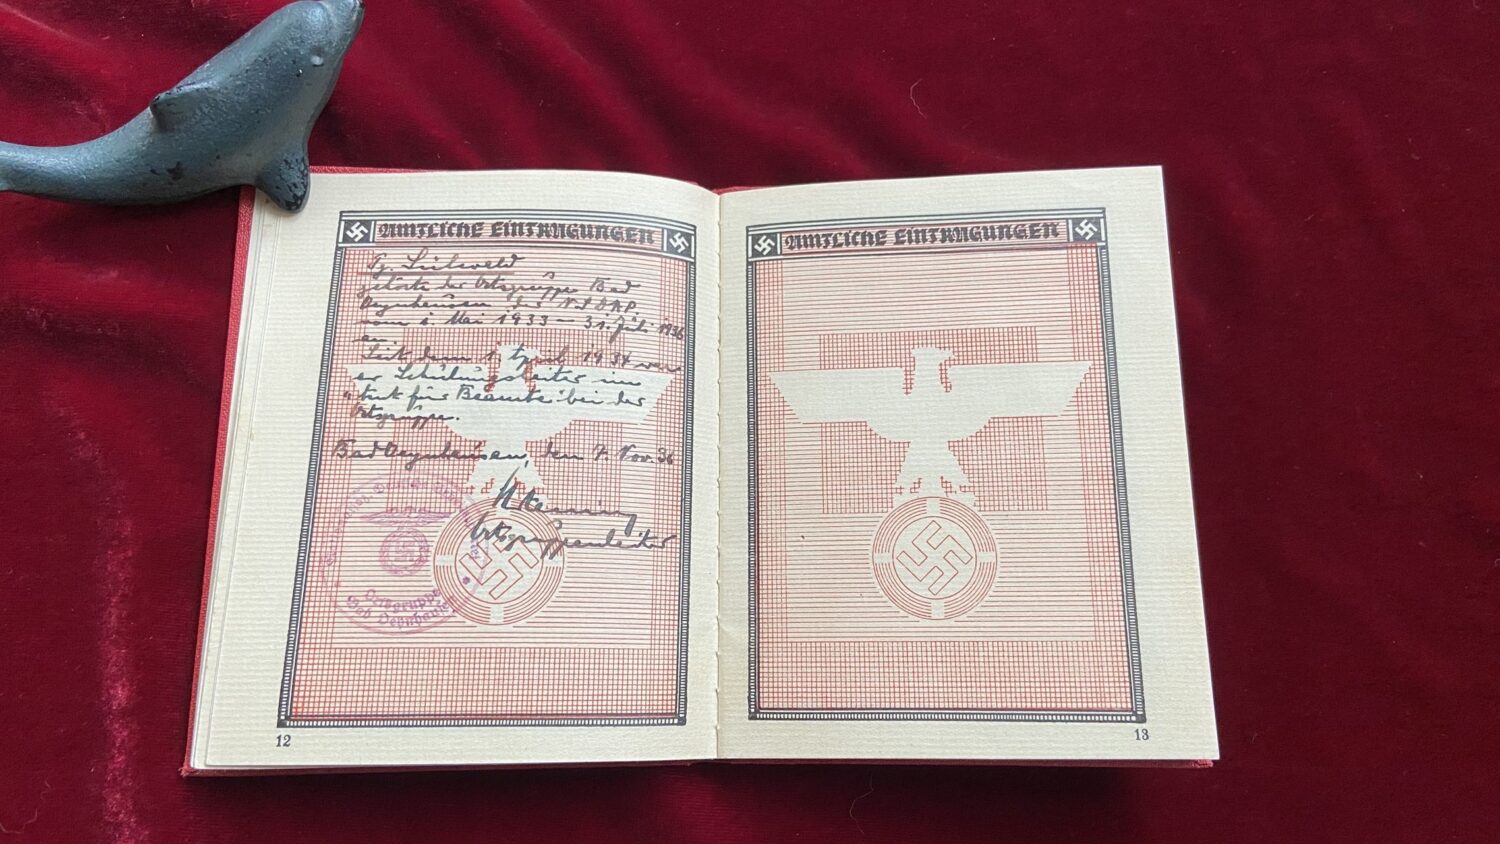 Amtliche Eintragungen
Pg.
gehörte der Ortsgruppe Bad
Oeynhausen der N.S.D.A.P.
vom 1. Mai 1933 – 31. Juli 1936
an.
Seit dem 1. April 1934 war
er Schulungsleiter im
Amt für Beamte bei der
Ortsgruppe.
Bad Oeynhausen, den 7. Nov. 36
Ortsgruppenleiter
Ortsgruppe
Bad Oeynhausen
12
Amtliche Eintragungen
13